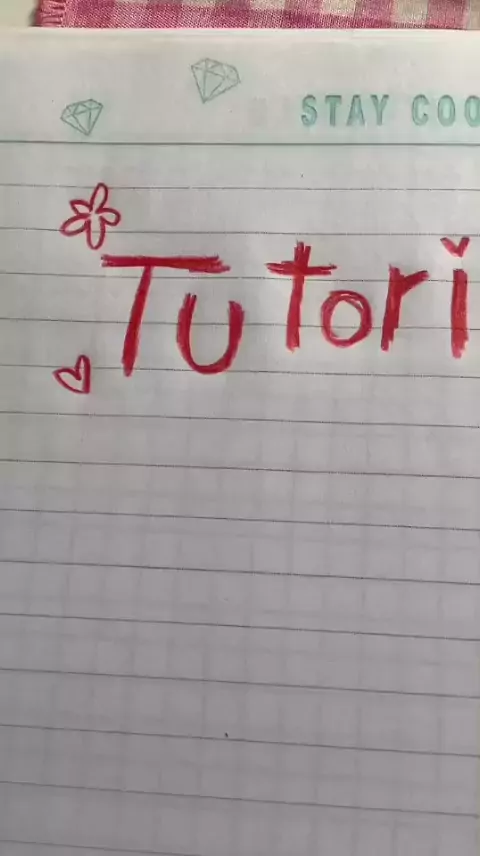 STAY COO
Tutori